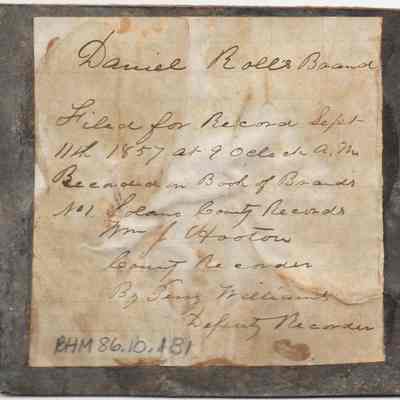 Daniel Rolls Brand
Filed for Record Sept
11th 1857 at 9 Oclock A.M
Recorded in Book of Brands
No 1 Solano County Records
Wm J Hooton
County Recorder
By Williams
Deputy Recorder
BHM 86.10.181